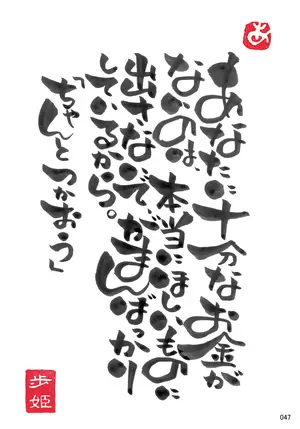 あ
あなたに十分なお金が
ないのは、本当にほしいものに
出さないで、がまんばっかり
しているから。
「ちゃんとつかおう」
歩姫
047